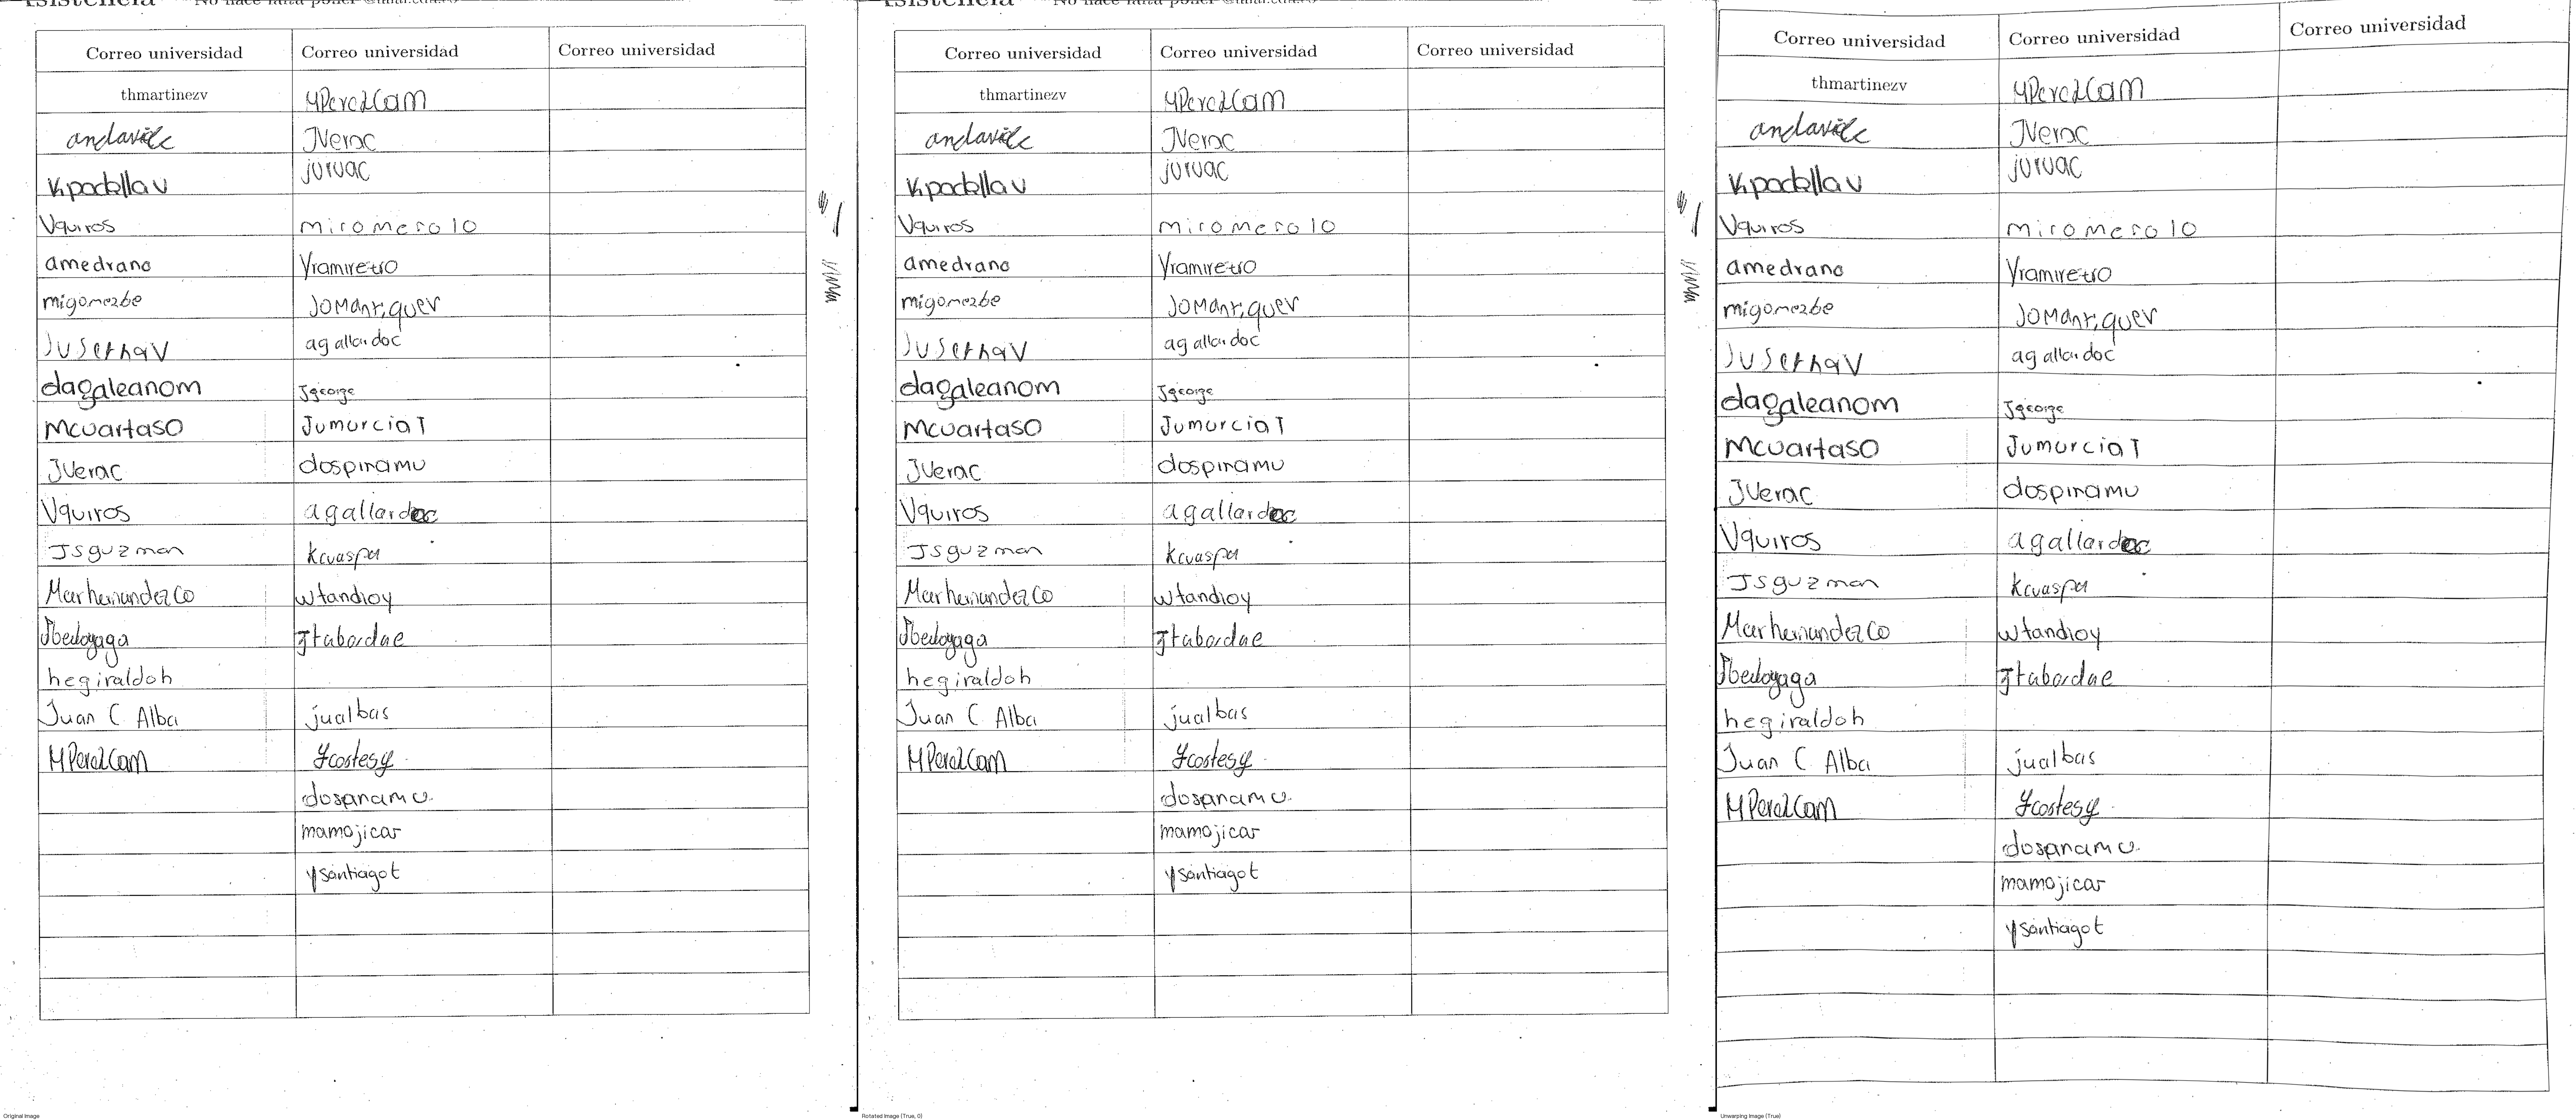 sistencia No hace falta poner
Correo universidad Correo universidad Correo universidad
thmartinezv MPerezCam
andavile JVerac
kpadillav juruac
Vquiros miromero10
amedrano Yramirezro
migomezbe JOManriquer
Jusethav agallardoc
dagaleanom Jgeorge
Mcuartaso JumurciaT
JVerac dospinamu
Vquiros agallardoc
JSguzman kcuaspa
MarhernandezCo wtandioy
Jbedoyaga jtabordae
hegiraldoh
Juan C Alba jualbas
MPerezCam
dospinamu
mamojicar
ysantiagot
Original Image
sistencia No hace falta poner
Correo universidad Correo universidad Correo universidad
thmartinezv MPerezCam
andavile JVerac
kpadillav juruac
Vquiros miromero10
amedrano Yramirezro
migomezbe JOManriquer
Jusethav agallardoc
dagaleanom Jgeorge
Mcuartaso JumurciaT
JVerac dospinamu
Vquiros agallardoc
JSguzman kcuaspa
MarhernandezCo wtandioy
Jbedoyaga jtabordae
hegiraldoh
Juan C Alba jualbas
MPerezCam
dospinamu
mamojicar
ysantiagot
Rotated Image (True, 0)
Correo universidad Correo universidad Correo universidad
thmartinezv MPerezCam
andavile JVerac
kpadillav juruac
Vquiros miromero10
amedrano Yramirezro
migomezbe JOManriquer
Jusethav agallardoc
dagaleanom Jgeorge
Mcuartaso JumurciaT
JVerac dospinamu
Vquiros agallardoc
JSguzman kcuaspa
MarhernandezCo wtandioy
Jbedoyaga jtabordae
hegiraldoh
Juan C Alba jualbas
MPerezCam
dospinamu
mamojicar
ysantiagot
Unwarping Image (True)